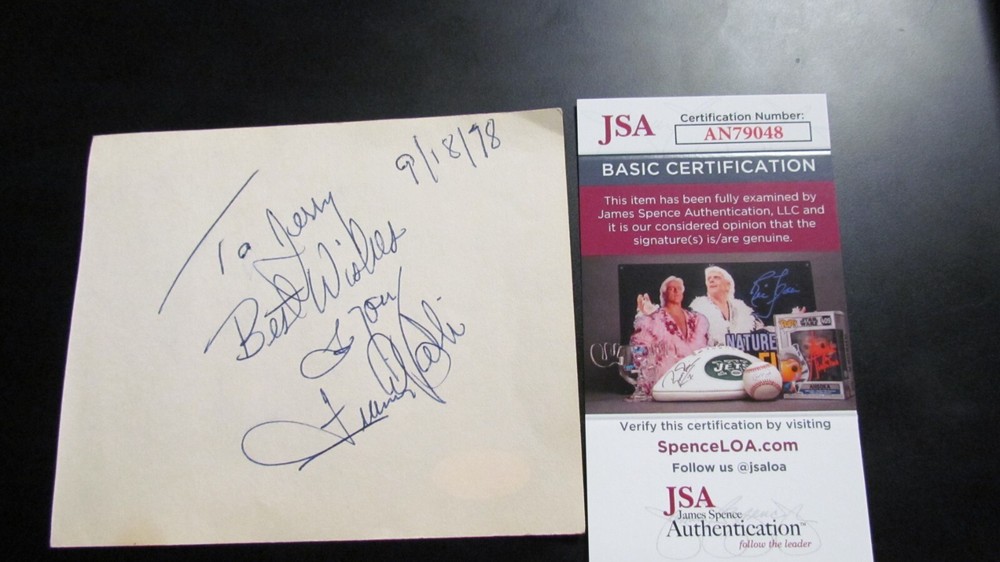 9/18/98
To Jerry
Best Wishes
to you
Frankie
JSA
Certification Number:
AN79048
BASIC CERTIFICATION
This item has been fully examined by
James Spence Authentication, LLC and
it is our considered opinion that the
signature(s) is/are genuine.
NATURE
JETS
Verify this certification by visiting
SpenceLOA.com
Follow us @jsaloa
JSA
James Spence
Authentication™
follow the leader